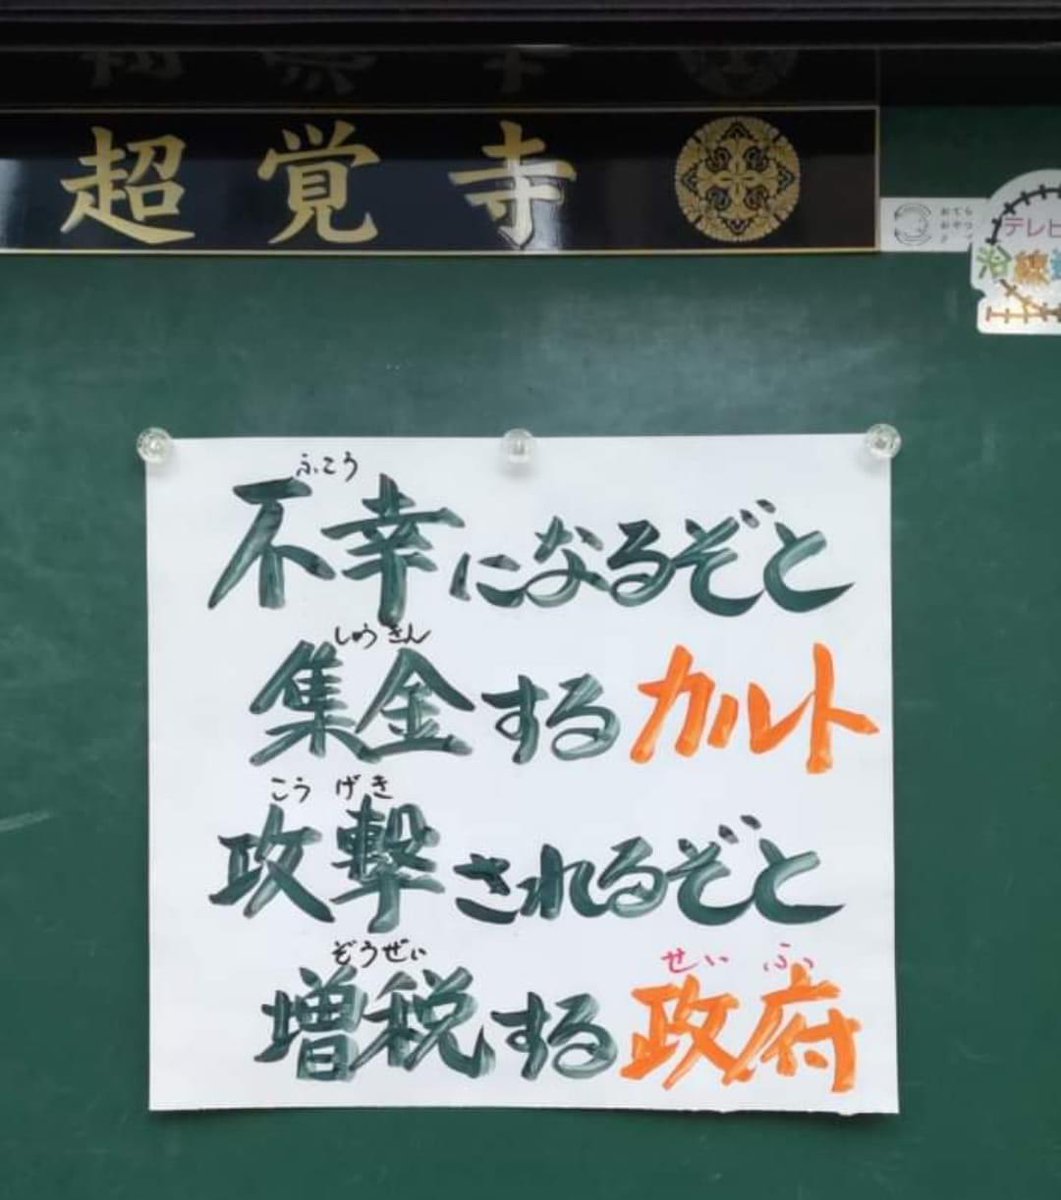 超覚寺
おてら
おやつ
テレビ
沿線
ふこう
不幸になるぞと
しゅうきん
集金するカルト
こうげき
攻撃されるぞと
ぞうぜい せいふ
増税する政府